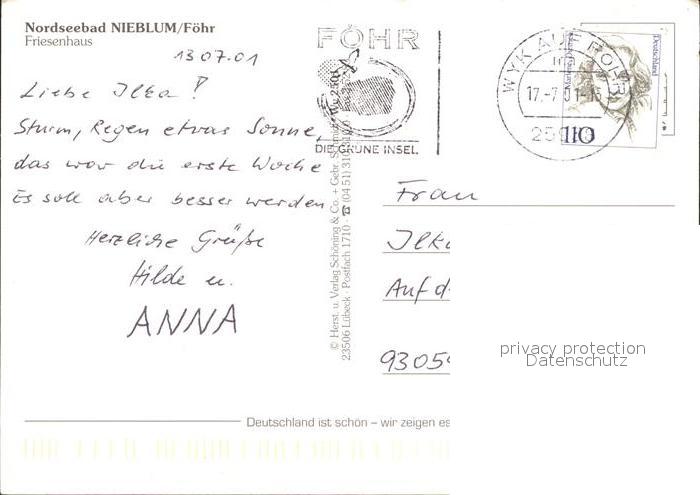 Nordseebad NIEBLUM/Föhr
Friesenhaus
13 07.01
Liebe Ilka!
Sturm, Regen etwas Sonne,
das war die erste Woche
Es soll aber besser werden
Herzliche Grüße
Hilde u.
ANNA
FÖHR
DIE GRÜNE INSEL.
WYK AUF FÖHR
17.-7
110
Deutschland
© Herst. u. Verlag Schöning & Co. + Gebr. Schmidt
23506 Lübeck · Postfach 1710 · ☎ (04 51) 31 03
Frau
Ilk
Auf d
9305
privacy protection
Datenschutz
Deutschland ist schön – wir zeigen es